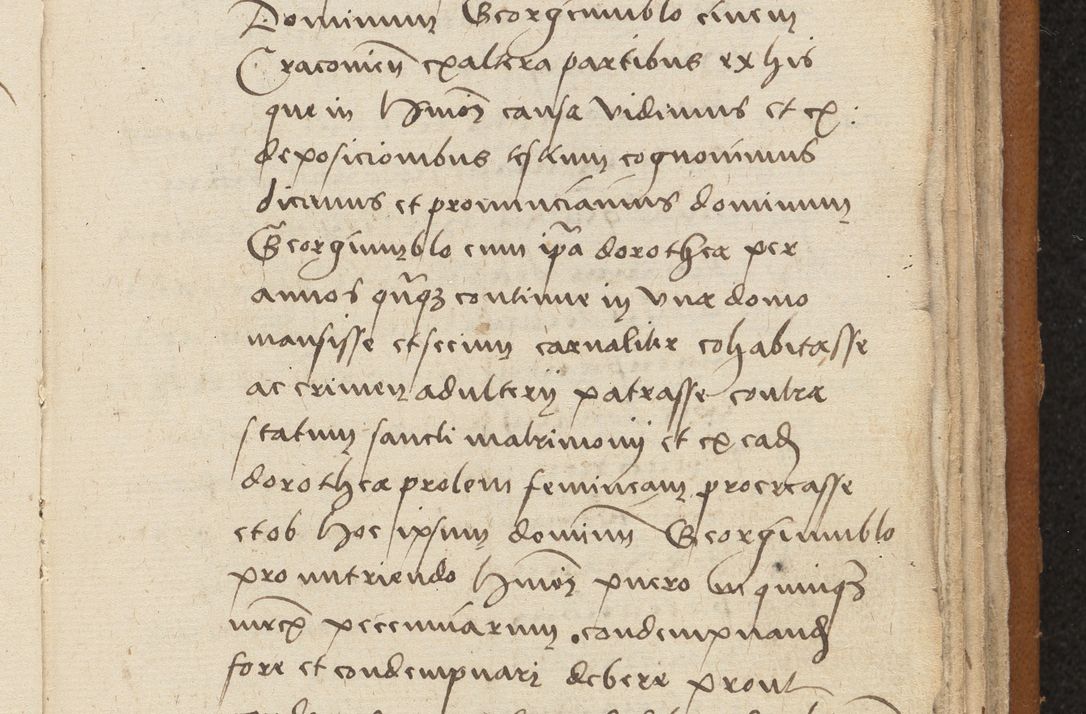 Dominum Georgiumblo civem
Craconien̄ exaltera partibus ex his
que in Hmōi causa vidimus et ex
deposicionibus testium cognovimus
dicimus et pronunciamus dominum
Georgiumblo cum ip̄a dorothea per
annos qn̄q3 continue in una domo
mansisse et secum carnaliter cohabitasse
ac crimen adulterij patrasse contra
statum sancti matrimonij et ex ead
dorothea prolem femineam procreasse
et ob Hoc ipsum dominū Georgiumblo
pro nutriendo Hmōi puero in quinq3
mrc pecuniarum condempnand
fore et condempnari debere prout